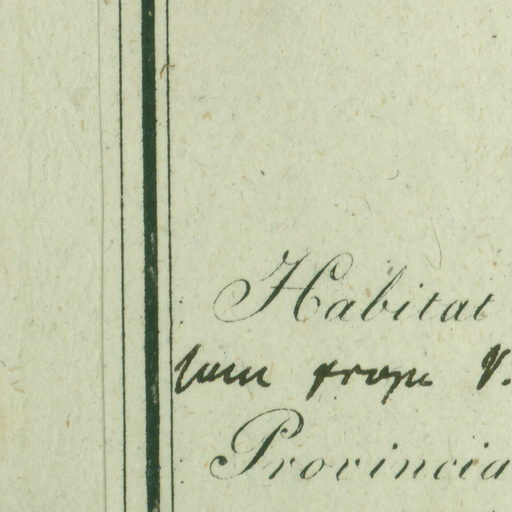 Habitat
prope V.
Provincia